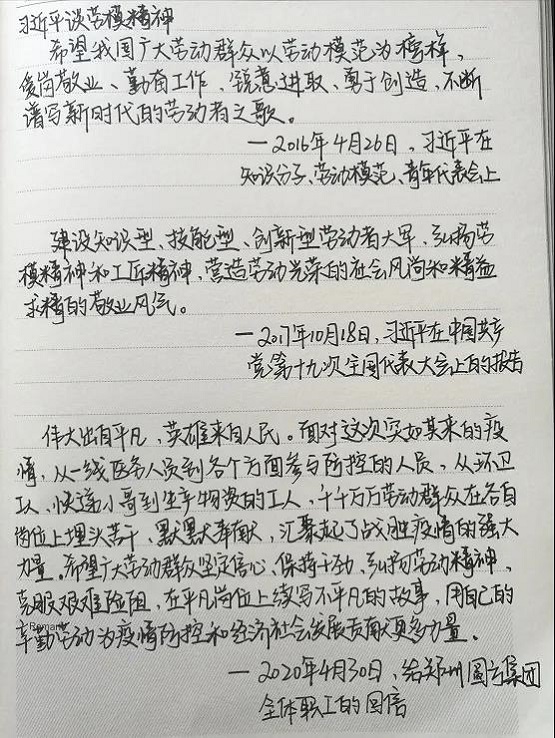 习近平谈劳模精神
希望我国广大劳动群众以劳动模范为榜样，
爱岗敬业、勤奋工作，锐意进取、勇于创造，不断
谱写新时代的劳动者之歌。
—2016年4月26日，习近平在
知识分子、劳动模范、青年代表会上
建设知识型、技能型、创新型劳动者大军，弘扬劳
模精神和工匠精神，营造劳动光荣的社会风尚和精益
求精的敬业风气。
—2017年10月18日，习近平在中国共产
党第十九次全国代表大会上的报告
伟大出自平凡，英雄来自人民。面对这次突如其来的疫
情，从一线医务人员到各个方面参与防控的人员，从环卫
工人、快递小哥到生产物资的工人，千千万万劳动群众在各自
岗位上埋头苦干、默默奉献，汇聚起了战胜疫情的强大
力量。希望广大劳动群众坚定信心、保持干劲，弘扬劳动精神，
克服艰难险阻，在平凡岗位上续写不平凡的故事，用自己的
辛勤劳动为疫情防控和经济社会发展贡献更多力量。
—2020年4月30日，给郑州圆方集团
全体职工的回信